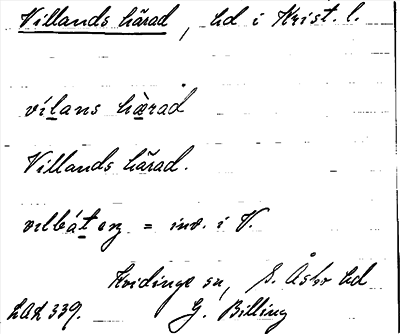 Villands härad, hd i Krist. l.
vílans hæ̀rad
Villands härad.
vɩlbátɐŋ = inv. i V.
Kvidinge sn, S. Åsbo hd
LAL 339. G. Billing